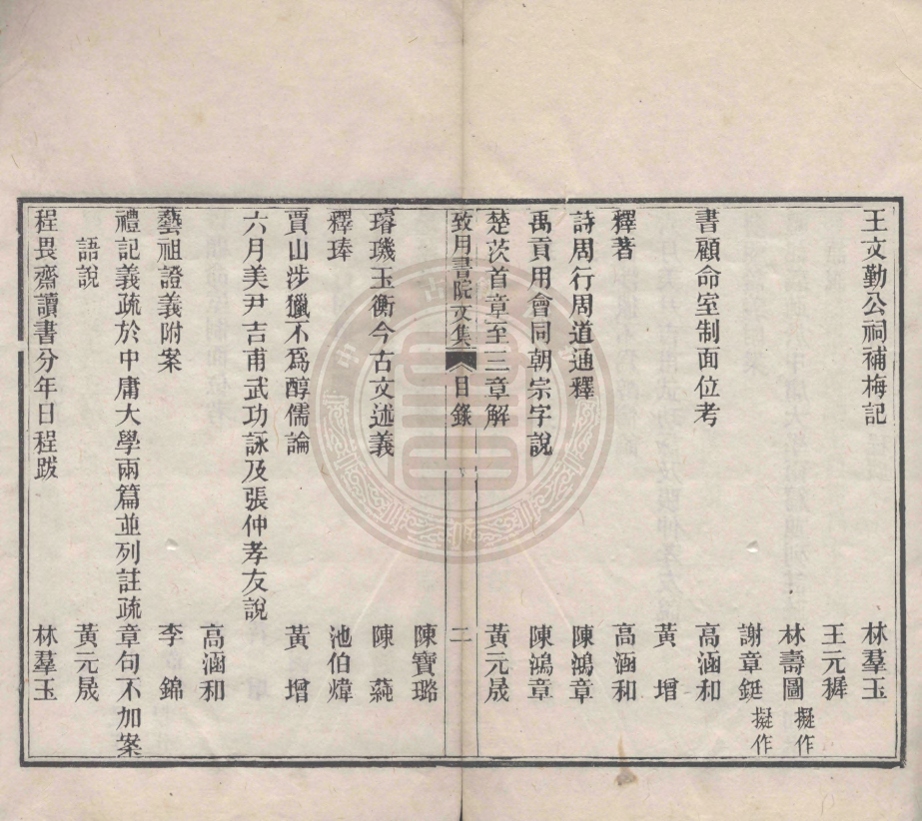 王文勤公祠補梅記 林羣玉
王元穉
林壽圖 擬作
謝章鋌 擬作
書顧命室制面位考 高涵和
黃 增
釋著 高涵和
詩周行周道通釋 陳鴻章
禹貢用會同朝宗字說 陳鴻章
楚茨首章至三章解 黃元晟
致用書院文集 目錄 二
陳寶璐
璿璣玉衡今古文述義 陳
釋琫 池伯煒
賈山涉獵不爲醇儒論 黃 增
六月美尹吉甫武功詠及張仲孝友說
高涵和
藝祖證義附案 李 錦
禮記義疏於中庸大學兩篇並列註疏章句不加案
語說 黃元晟
程畏齋讀書分年日程跋 林羣玉